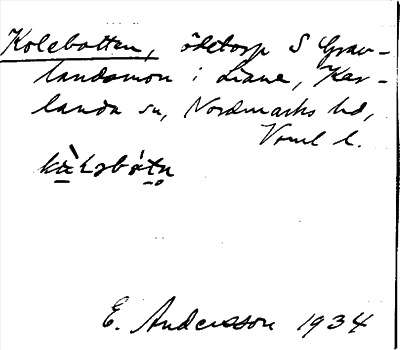 Kolebotten, ödetorp S Grav-
landamon i Liane, Kar-
landa sn, Nordmarks hd,
Vrml l.
kὰLəbótn̥
E. Andersson 1934